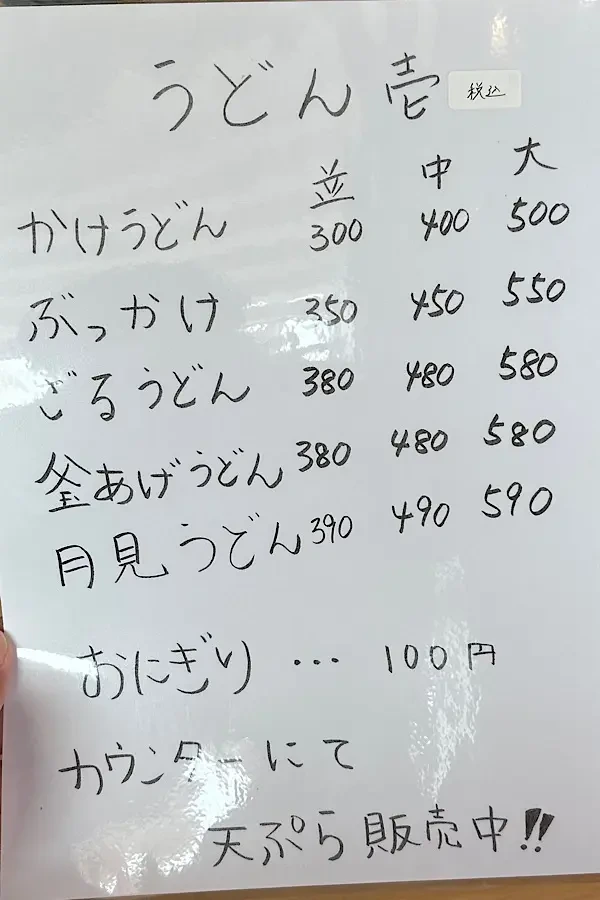 うどん 壱 税込
並 中 大
かけうどん 300 400 500
ぶっかけ 350 450 550
ざるうどん 380 480 580
釜あげうどん 380 480 580
月見うどん 390 490 590
おにぎり … 100円
カウンターにて
天ぷら販売中!!